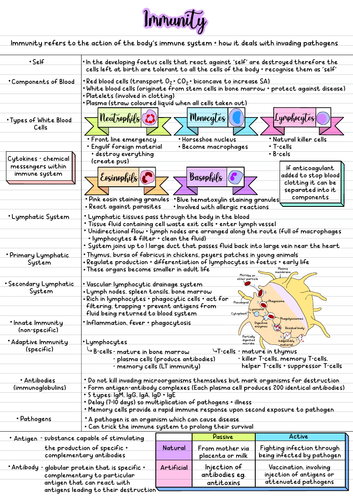 Immunity
Immunity refers to the action of the body's immune system + how it deals with invading pathogens
• Self
• In the developing foetus cells that react against 'self' are destroyed therefore the
cells left at birth are tolerant to all the cells of the body + recognise them as 'self'
• Components of Blood
• Red blood cells (transport O₂ + CO₂ + biconcave to increase SA)
• White blood cells (originate from stem cells in bone marrow + protect against disease)
• Platelets (involved in clotting)
• Plasma (straw coloured liquid when all cells taken out)
• Types of White Blood
Cells
Neutrophils
Monocytes
Lymphocytes
• Front line emergency
• Engulf foreign material
+ destroy everything
(create pus)
• Horseshoe nucleus
• Become macrophages
• Natural killer cells
• T-cells
• B-cells
Cytokines - chemical
messengers within
immune system
If anticoagulant
added to stop blood
clotting it can be
separated into it
components
Eosinophils
Basophils
• Pink eosin staining granules
• React against parasites
• Blue hematoxylin staining granules
• Involved with allergic reactions
• Lymphatic System
• Lymphatic tissues pass through the body in the blood
• Tissue fluid containing cell waste exit cells + enter lymph vessel
• Unidirectional flow + lymph nodes are arranged along the route (full of macrophages
+ lymphocytes & filter + clean the fluid)
• System joins up to 1 large duct that passes fluid back into large vein near the heart
• Primary Lymphatic
System
• Thymus, bursa of fabricius in chickens, peyers patches in young animals
• Regulate production + differentiation of lymphocytes in foetus + early life
• These organs become smaller in adult life
• Secondary Lymphatic
System
• Vascular lymphocyte drainage system
• Lymph nodes, spleen tonsils, bone marrow
• Rich in lymphocytes + phagocytic cells + act for
filtering, trapping + prevent antigens from
fluid being returned to blood system
• Innate Immunity
(non-specific)
• Inflammation, fever + phagocytosis
• Adaptive Immunity
(specific)
• Lymphocytes
B-cells - mature in bone marrow
- plasma cells (produce antibodies)
- memory cells (LT immunity)
T-cells - mature in thymus
- killer T-cells, memory T-cells,
helper T-cells + suppressor T-cells
• Antibodies
(immunoglobulins)
• Do not kill invading microorganisms themselves but mark organisms for destruction
• Form antigen-antibody complexes (Each plasma cell produces 200 identical antibodies)
• 5 types: IgM, IgG, IgA, IgD + IgE
• Delay (7-10 days) so multiplication of pathogens + illness
• Memory cells provide a rapid immune response upon second exposure to pathogen
• Pathogens
• A pathogen is an organism which can cause disease
• Can trick the immune system to prolong their survival
• Antigen - substance capable of stimulating
the production of specific +
complementary antibodies
• Antibody - globular protein that is specific +
complementary to particular
antigen that can react with
antigens leading to their destruction
Passive
Active
Natural
From mother via
placenta or milk
Fighting infection through
being infected by pathogen
Artificial
Injection of
antibodies eg.
antitoxins
Vaccination, involving
injection of antigens or
attenuated pathogens